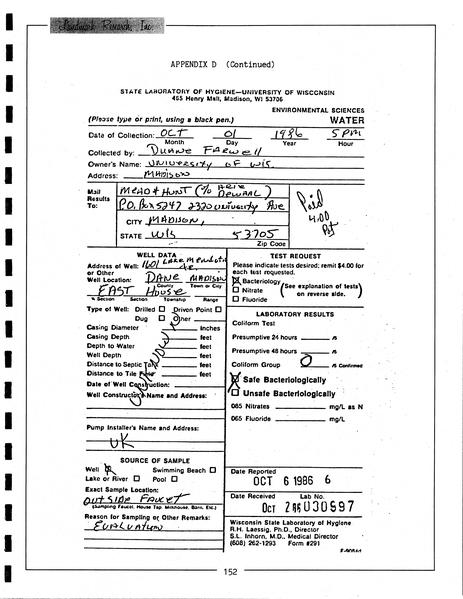 Landmark Research, Inc.
APPENDIX D (Continued)
STATE LABORATORY OF HYGIENE—UNIVERSITY OF WISCONSIN
465 Henry Mall, Madison, WI 53706
ENVIRONMENTAL SCIENCES
(Please type or print, using a black pen.) WATER
Date of Collection: OCT 01 1986 5 PM
Month Day Year Hour
Collected by: DUANE FARWELL
Owner's Name: UNIVERSITY OF WIS
Address: MADISON
Mail Results To: MEAD & HUNT (% ARIE DEWAAL)
P.O. Box 5247 2320 University Ave
CITY MADISON,
STATE WIS 53705
Zip Code
Paid
4.00
WELL DATA
Address of Well: 1601 Lake Mendota Dr.
or Other
Well Location: DANE MADISON
County Town or City
EAST HOUSE
¼ Section Section Township Range
Type of Well: Drilled ☐ Driven Point ☐
Dug ☐ Other
Casing Diameter inches
Casing Depth feet
Depth to Water feet
Well Depth feet
Distance to Septic Tank feet
Distance to Tile Field feet
UNKNOWN
Date of Well Construction:
Well Constructor's Name and Address:
Pump Installer's Name and Address:
UK
SOURCE OF SAMPLE
Well ☒ Swimming Beach ☐
Lake or River ☐ Pool ☐
Exact Sample Location:
OUTSIDE FAUCET
(Sampling Faucet, House Tap, Milkhouse, Barn, Etc.)
Reason for Sampling or Other Remarks:
EVALUATION
TEST REQUEST
Please indicate tests desired; remit $4.00 for
each test requested.
☒ Bacteriology
☐ Nitrate (See explanation of tests
☐ Fluoride on reverse side.)
LABORATORY RESULTS
Coliform Test
Presumptive 24 hours /5
Presumptive 48 hours /5
Coliform Group 0 /5 Confirmed
☒ Safe Bacteriologically
☐ Unsafe Bacteriologically
065 Nitrates mg/L as N
065 Fluoride mg/L
Date Reported
OCT 6 1986 6
Date Received Lab No.
Oct 2 030997
Wisconsin State Laboratory of Hygiene
R.H. Laessig, Ph.D., Director
S.L. Inhorn, M.D., Medical Director
(608) 262-1293 Form #291
152